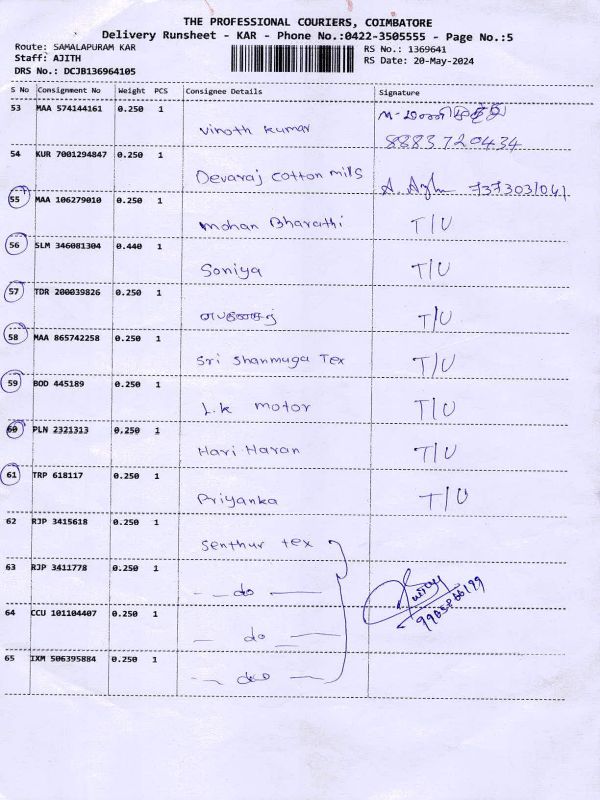 THE PROFESSIONAL COURIERS, COIMBATORE
Delivery Runsheet - KAR - Phone No.:0422-3505555 - Page No.:5
Route: SAMALAPURAM KAR
Staff: AJITH
DRS No.: DCJB136964105
RS No.: 1369641
RS Date: 20-May-2024
S No Consignment No Weight PCS Consignee Details Signature
53 MAA 574144161 0.250 1
Vinoth kumar 8883720434
54 KUR 7001294847 0.250 1
Devaraj cotton mills
55 MAA 106279010 0.250 1
Mohan Bharathi T/U
56 SLM 346081304 0.440 1
Soniya T/U
57 TDR 200039826 0.250 1
T/U
58 MAA 865742258 0.250 1
Sri Shanmuga Tex T/U
59 BOD 445189 0.250 1
L.K motor T/U
60 PLN 2321313 0.250 1
Hari Haran T/U
61 TRP 618117 0.250 1
Priyanka T/U
62 RJP 3415618 0.250 1
Senthur tex
63 RJP 3411778 0.250 1
do
64 CCU 101104407 0.250 1
do
65 IXM 506395884 0.250 1
do